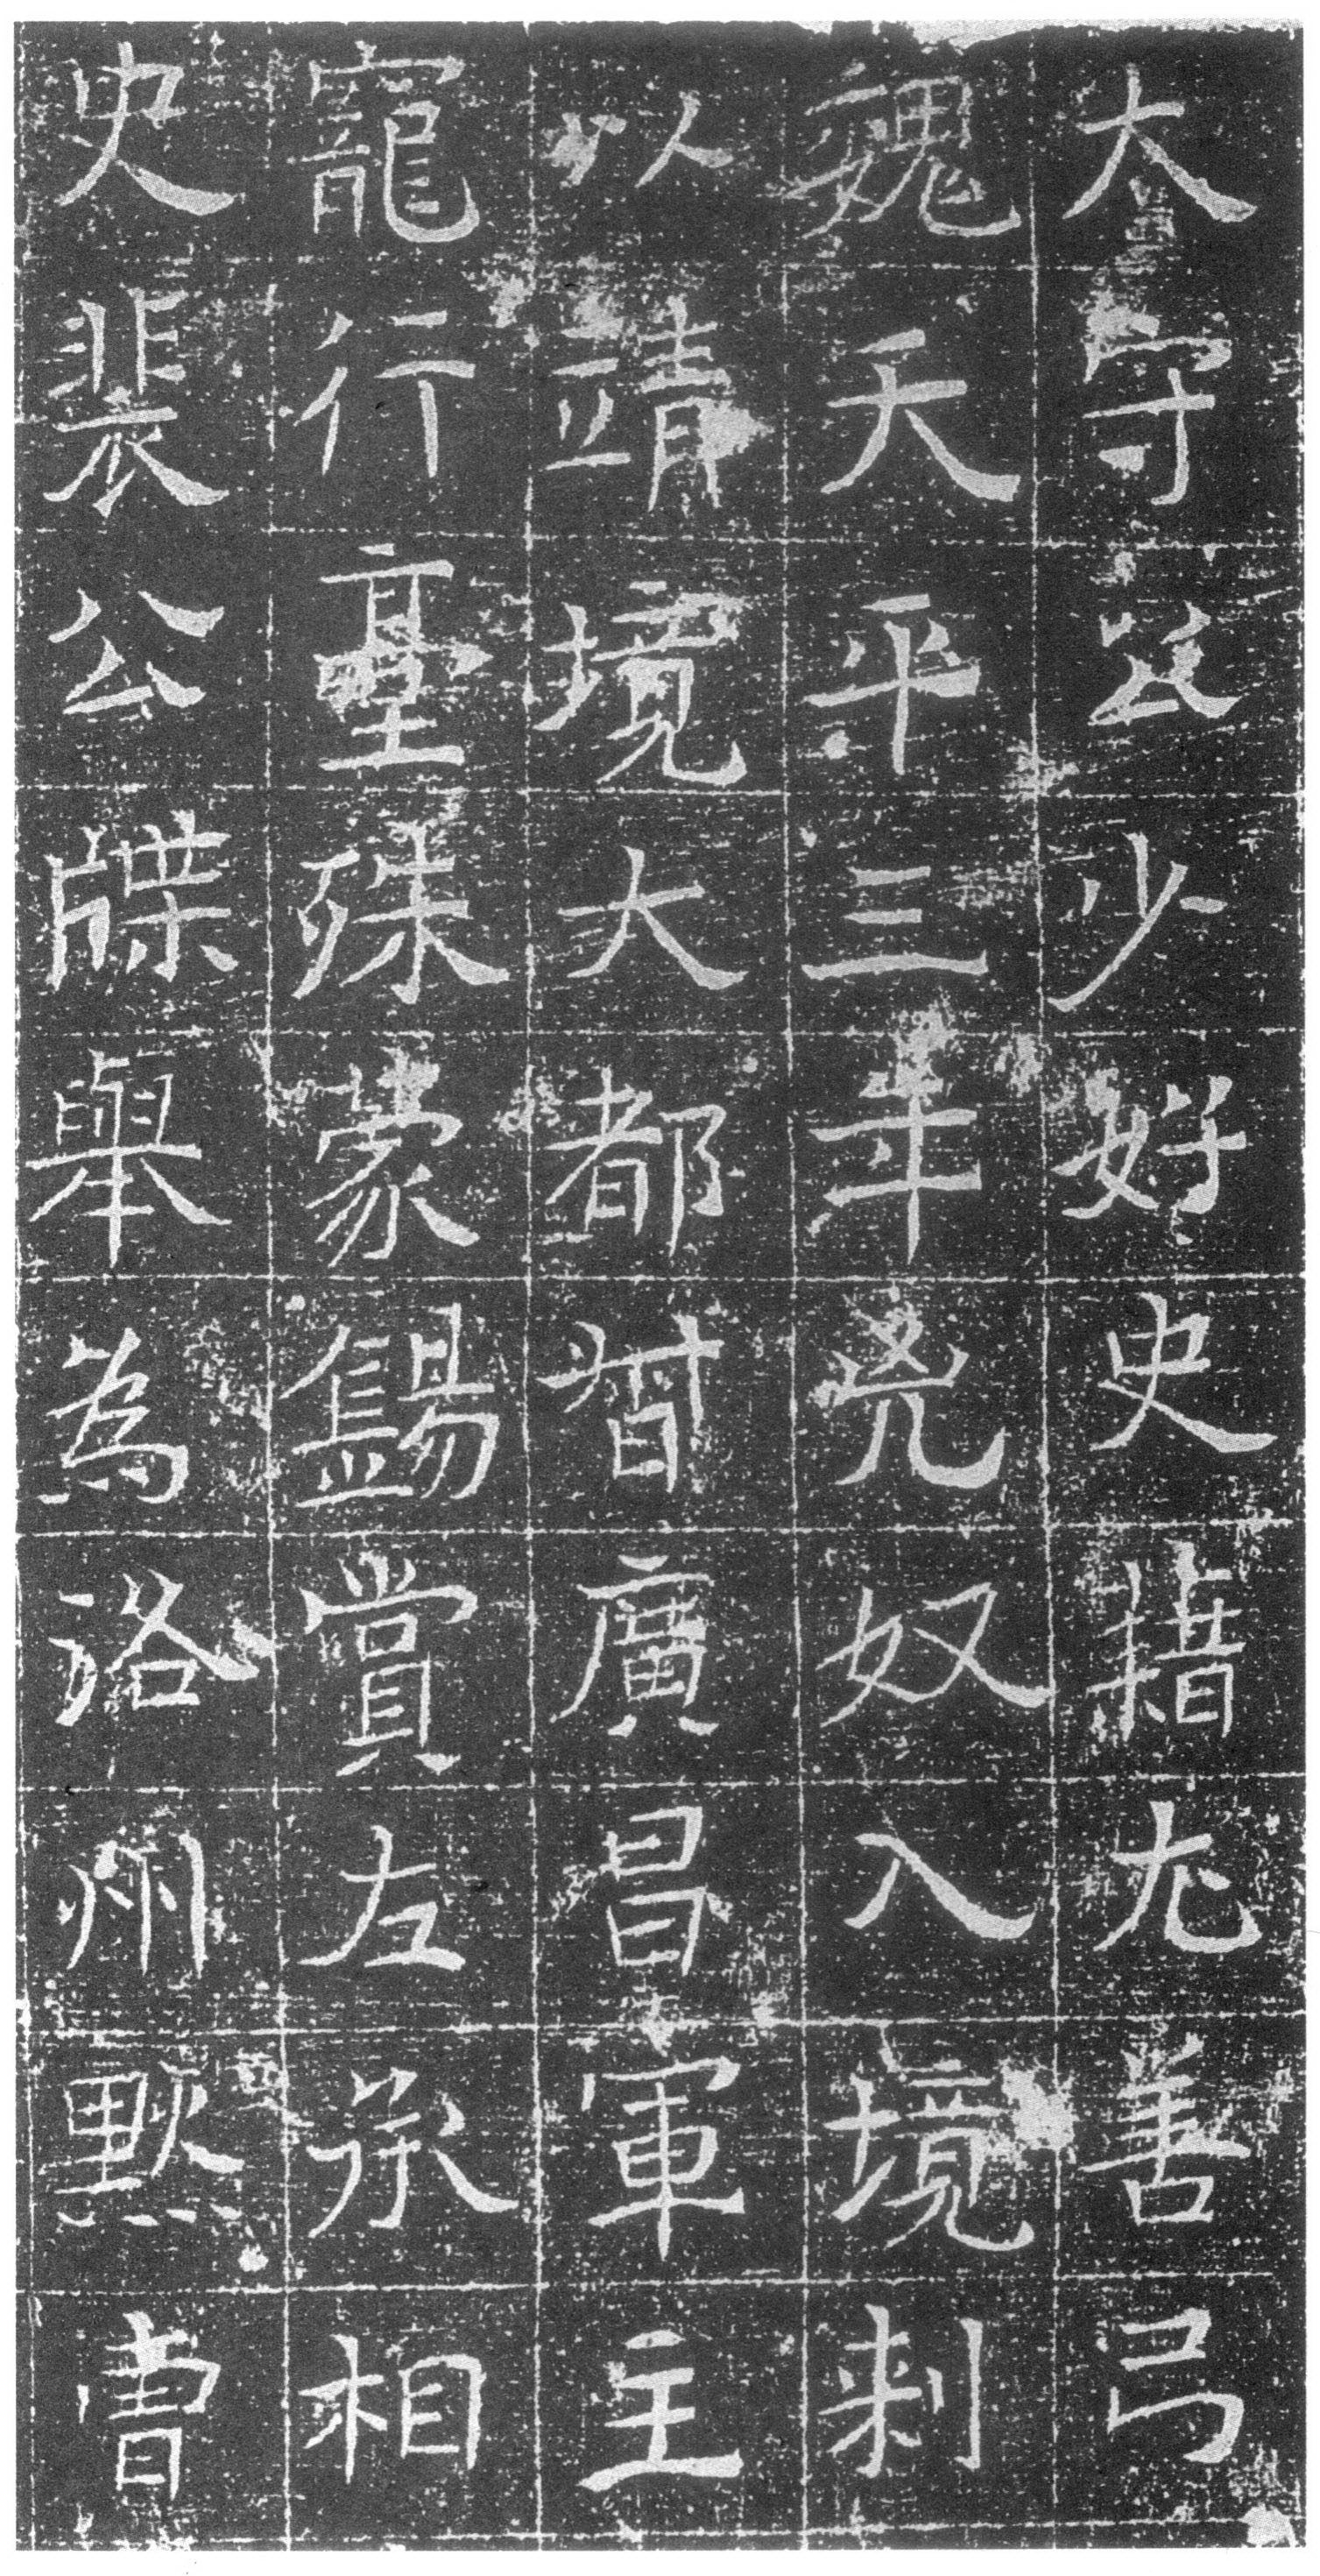 太守公少好史籍尤善弓
魏天平三年兇奴入境刺
以靖境大都督廣昌軍主
寵行臺殊蒙錫賞左丞相
史裴公牒舉為洛州默曹